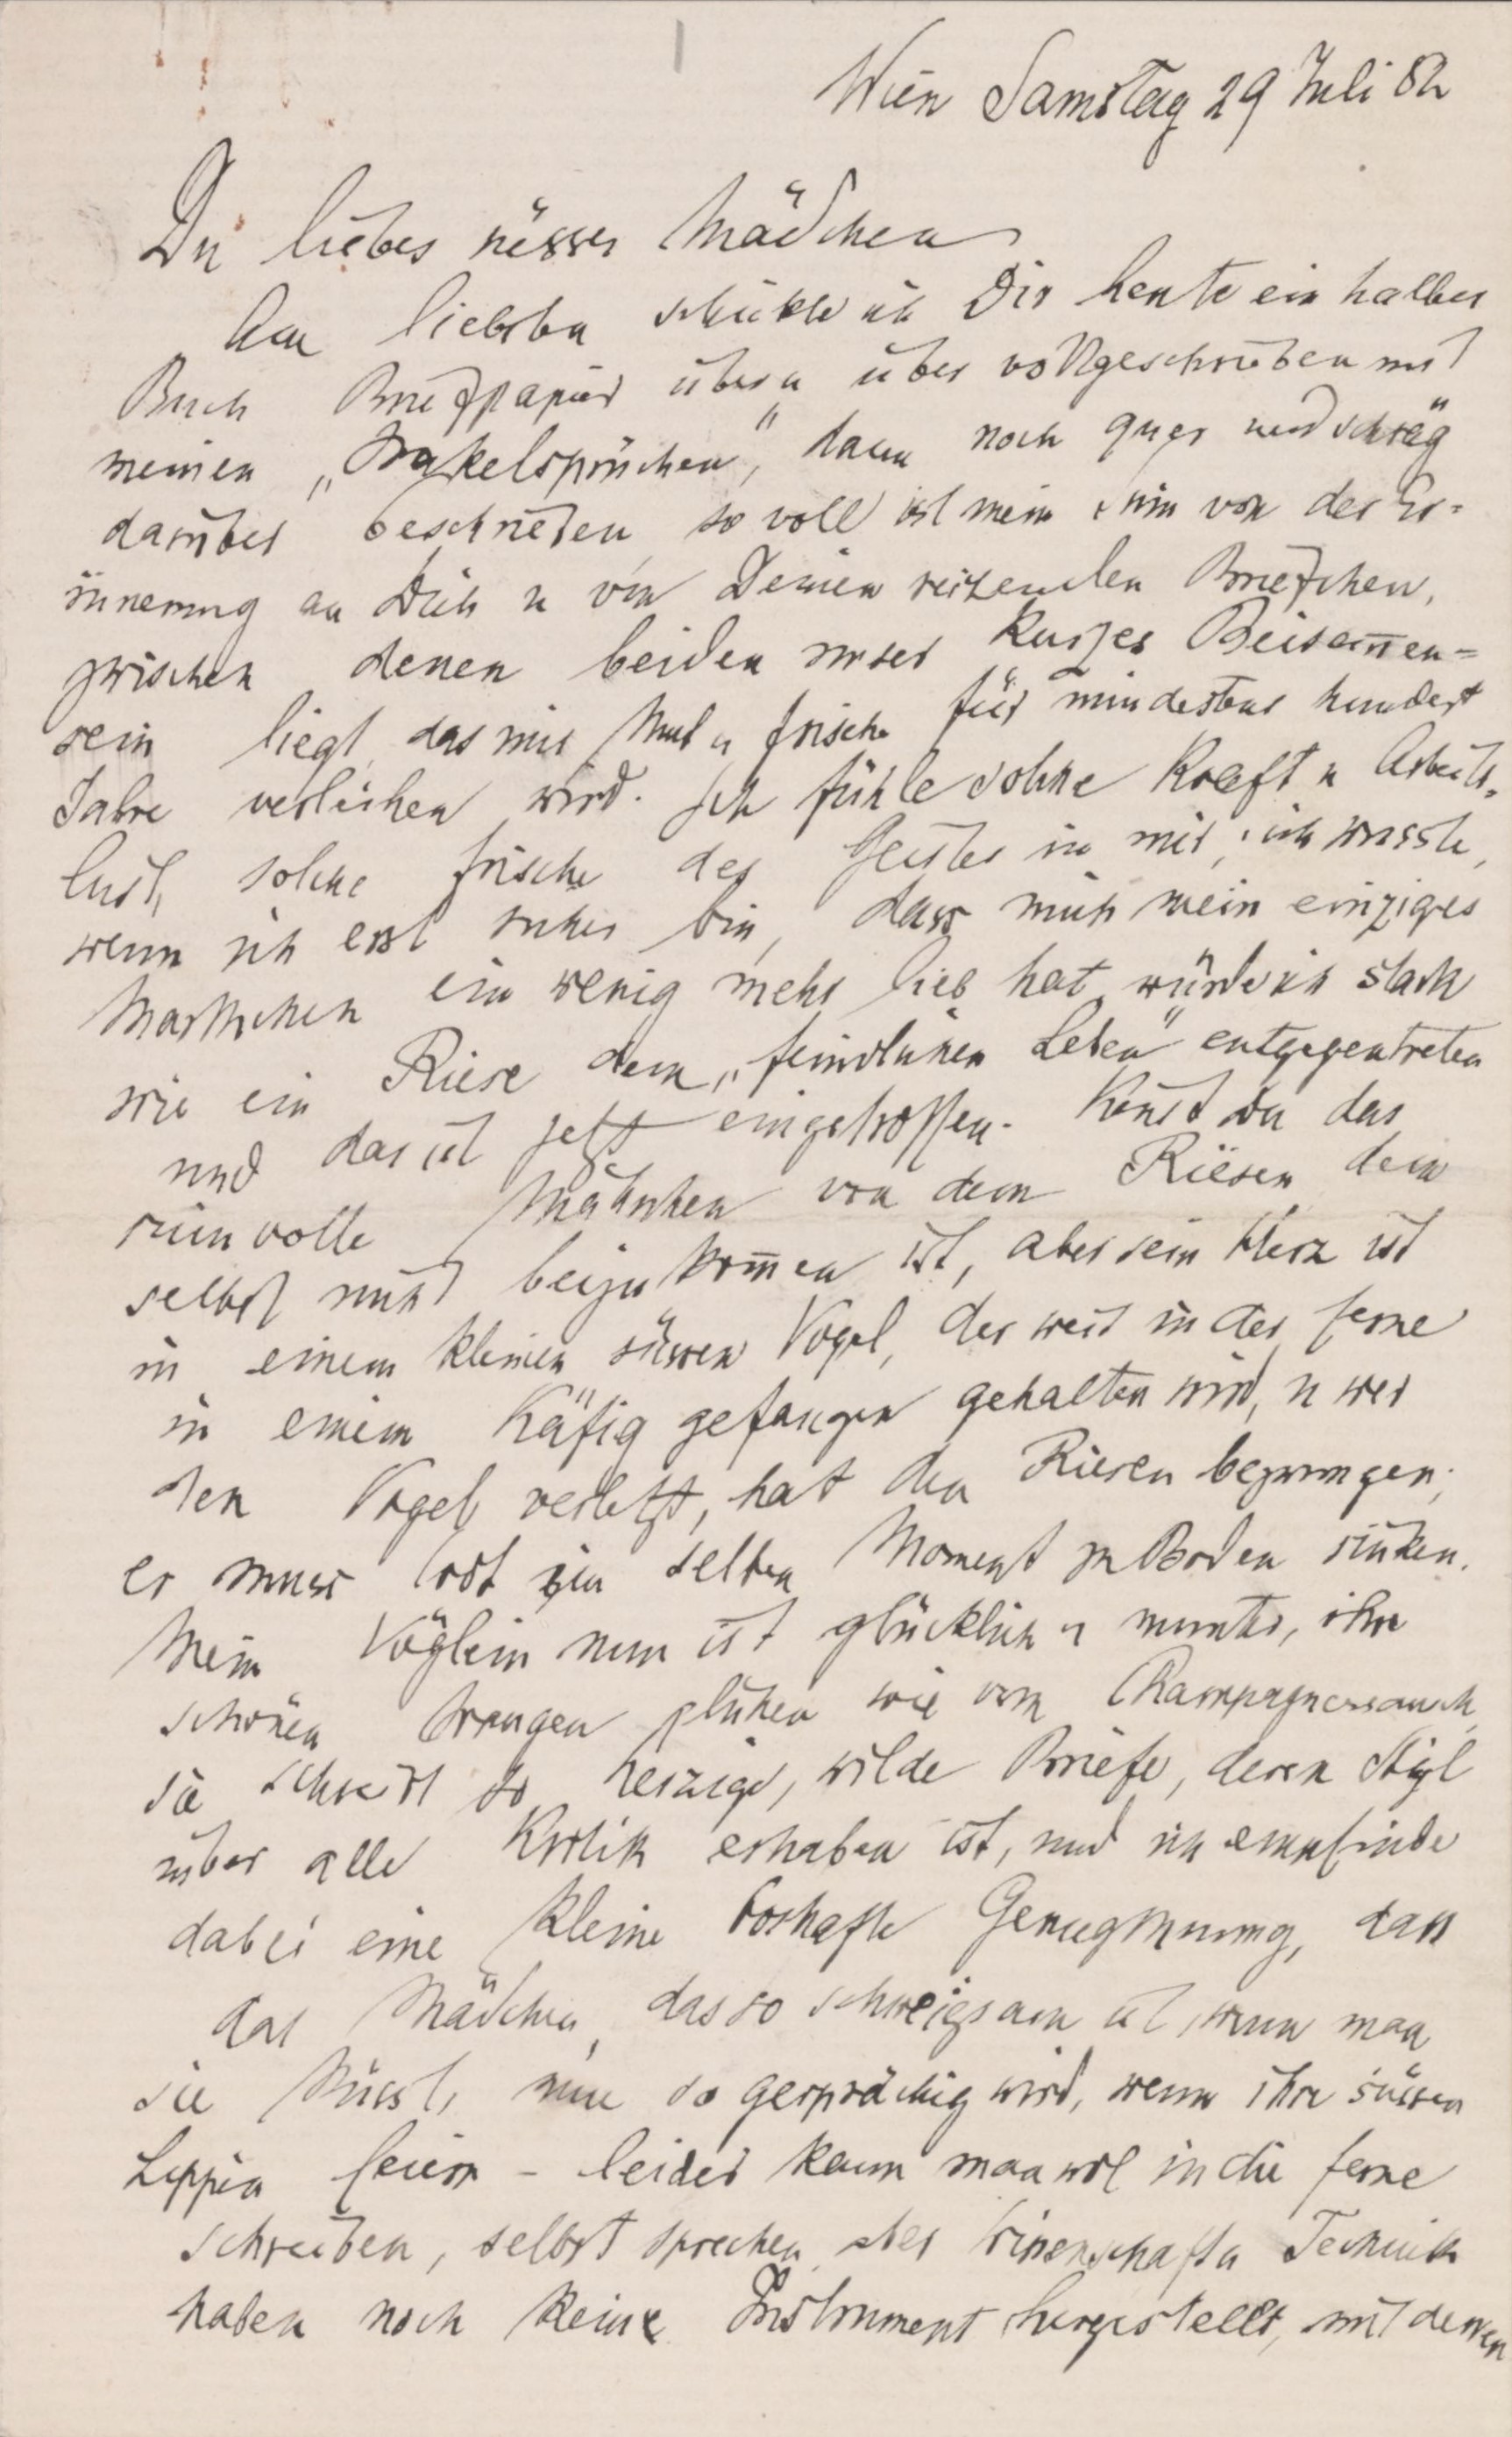 Wien Samstag 29 Juli 82
Du liebes süsses Mädchen
Am liebsten schickte ich Dir heute ein halbes
Buch Briefpapier über u über vollgeschrieben mit
meinen „Orakelsprüchen“, dann noch quer und schräg
darüber beschrieben, so voll ist mein Sinn von der Er-
innerung an Dich u von Deinen reizenden Briefchen,
zwischen denen beiden unser kurzes Beisam̅en-
sein liegt, das mir Mut u Frische für mindestens hundert
Jahre verleihen wird. Ich fühle solche Kraft u Arbeits-
lust, solche Frische des Geistes in mir; ich wusste,
wenn ich erst sicher bin, dass mich mein einziges
Marthchen ein wenig mehr lieb hat, würde ich stark
wie ein Riese dem „feindlichen Leben“ entgegentreten
und das ist jetzt eingetroffen. Kenst Du das
sinvolle Mährchen von dem Riesen, dem
selbst nicht beizukom̅en ist, aber sein Herz ist
in einem kleinen süssen Vogel, der weit in der Ferne
in einem Käfig gefangen gehalten wird, u wer
den Vogel verletzt, hat den Riesen bezwungen;
er muss todt im selben Moment zu Boden sinken.
Mein Vöglein nun ist glücklich u munter, ihre
schönen Wangen glühen wie vom Champagnerrausch,
sie schreibt so herzige, wilde Briefe, deren Styl
über alle Kritik erhaben ist, und ich empfinde
dabei eine kleine boshafte Genugthuung, dass
das Mädchen, das so schweigsam ist, wenn man
sie küsst, nun so gesprächig wird, wenn ihre süssen
Lippen feiern – leider kann man wol in die Ferne
schreiben, selbst sprechen, aber Wissenschaft u Technik
haben noch keine Instrument hergestellt, mit dessen